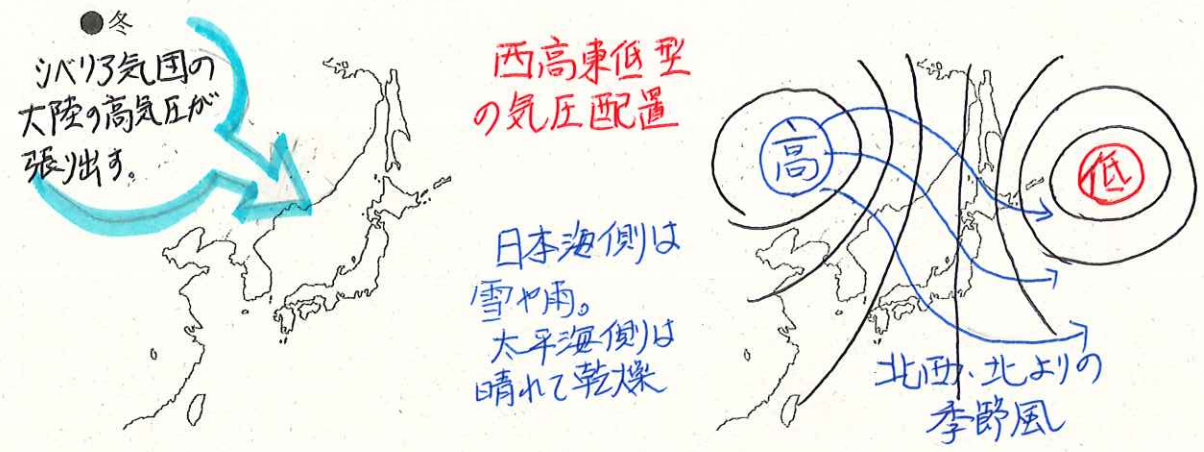 ●冬
シベリア気団の
大陸の高気圧が
張り出す。
西高東低型
の気圧配置
日本海側は
雪や雨。
太平海側は
晴れて乾燥
高
低
北西・北よりの
季節風